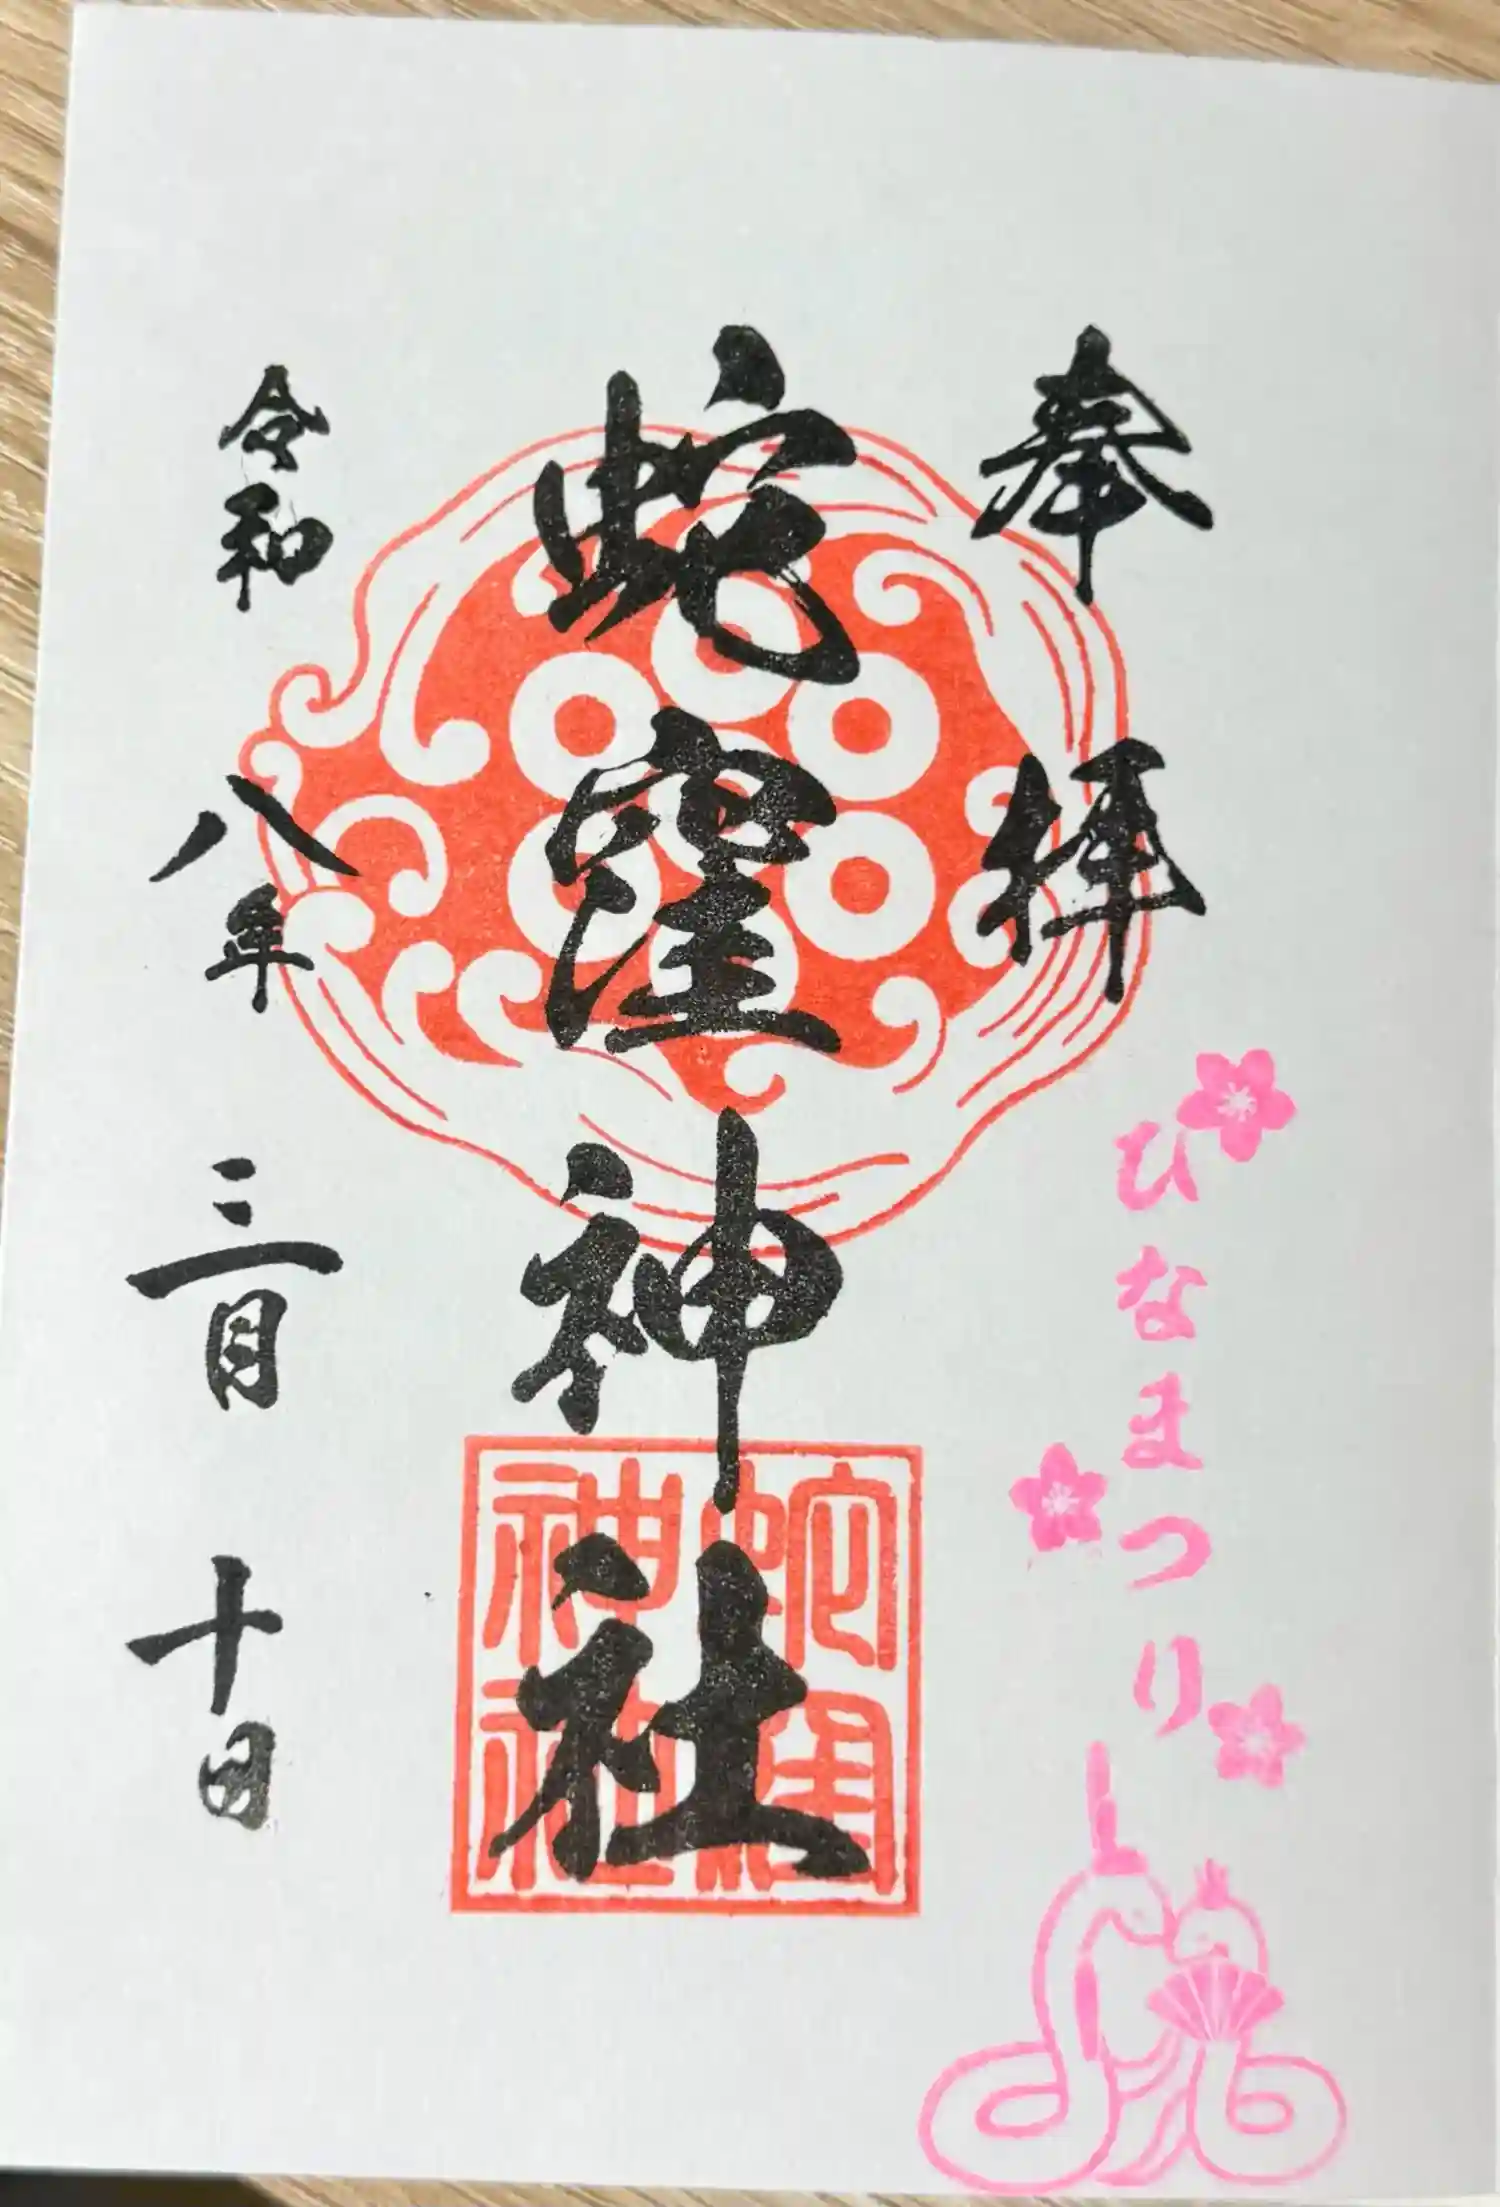 奉拝
ひなまつり
蛇窪神社
蛇窪
神社
令和八年三月十日